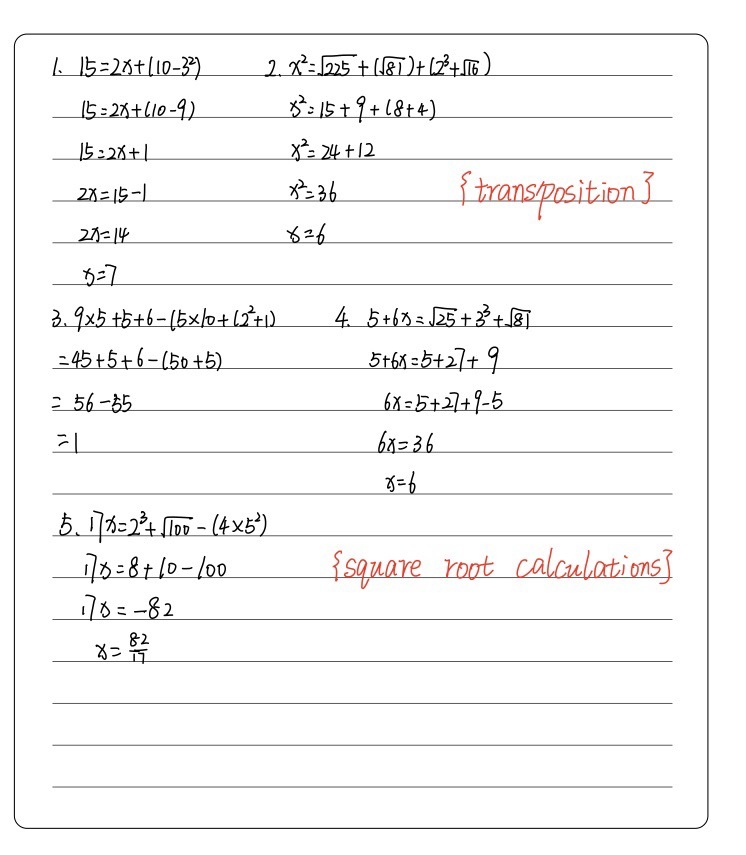 1. 15=2x+(10-3²)
15=2x+(10-9)
15=2x+1
2x=15-1
2x=14
x=7
2. x²=√225+(√81)+(2³+√16)
x²=15+9+(8+4)
x²=24+12
x²=36
x=6
{transposition}
3. 9×5+5+6-(5×10+(2²+1)
=45+5+6-(50+5)
= 56-55
=1
4. 5+6x=√25+3³+√81
5+6x=5+27+9
6x=5+27+9-5
6x=36
x=6
5. 17x=2³+√100-(4×5²)
17x=8+10-100
17x=-82
x=82/17
{square root calculations}